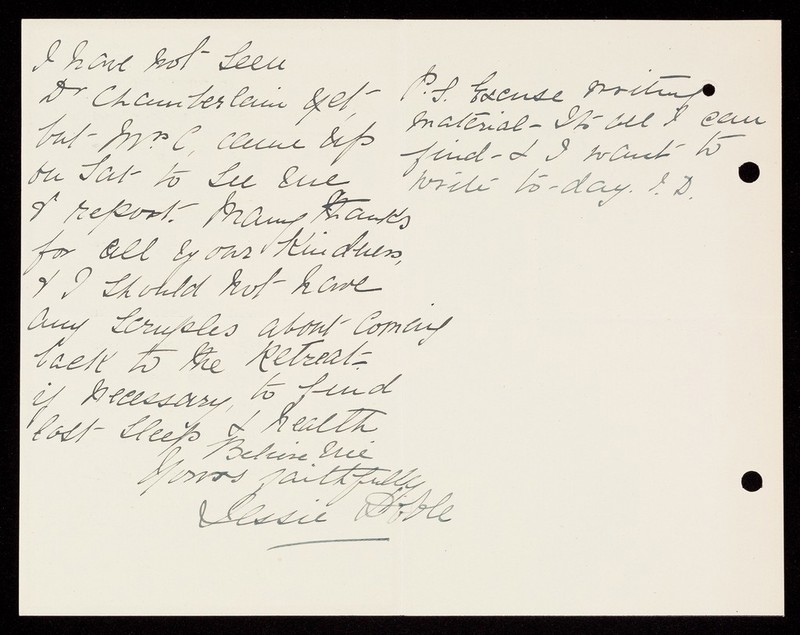 I have not seen
Dr Chamberlain yet,
but Mrs C, came up
on Sat to see me
& report. Many thanks
for all your kindness,
& I should not have
any scruples about coming
back to the Retreat
if necessary, to find
lost sleep & health
Believe me
Yours faithfully
Jessie Doble
P.S. Excuse writing
material - Its all I can
find - & I want to
write to-day. J. D.